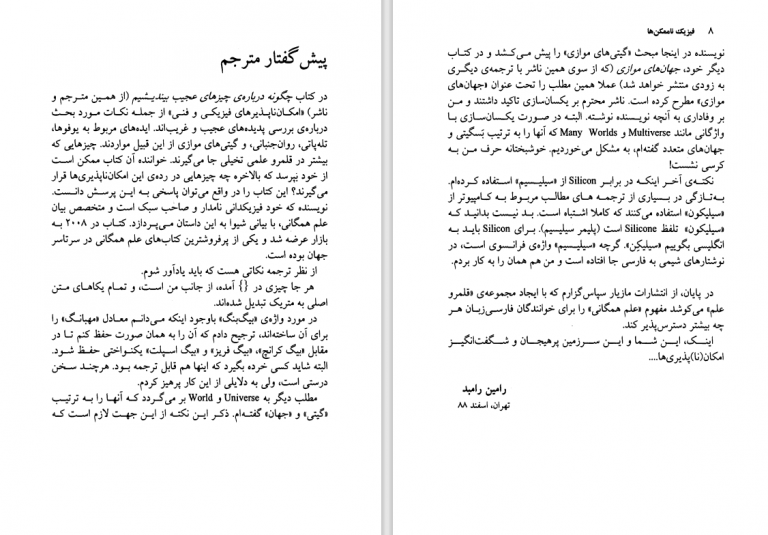 پیش‌گفتار مترجم
در کتاب چگونه درباره‌ی چیزهای عجیب بیندیشیم (از همین مترجم و
ناشر) «امکان‌ناپذیرهای فیزیکی و فنی» از جمله نکات مورد بحث
درباره‌ی بررسی پدیده‌های عجیب و غریب‌اند. ایده‌های مربوط به یوفوها،
تله‌پاتی، روان‌جنبانی، و گیتی‌های موازی از این قبیل مواردند. چیزهایی که
بیشتر در قلمرو علمی تخیلی جا می‌گیرند. خواننده‌ی آن کتاب ممکن است
از خود بپرسد که بالاخره چه چیزهایی در رده‌ی این امکان‌ناپذیری‌ها قرار
می‌گیرند؟ این کتاب را در واقع می‌توان پاسخی به این پرسش دانست.
نویسنده که خود فیزیکدانی نامدار و صاحب سبک است و متخصص بیان
علم همگانی، با بیانی شیوا به این داستان می‌پردازد. کتاب در ۲۰۰۸ به
بازار عرضه شد و یکی از پرفروشترین کتاب‌های علم همگانی در سرتاسر
جهان بوده است.
از نظر ترجمه نکاتی هست که باید یادآور شوم.
هر جا چیزی در {} آمده، از جانب من است، و تمام یکاهای متن
اصلی به متریک تبدیل شده‌اند.
در مورد واژه‌ی «بیگ‌بنگ» باوجود اینکه می‌دانم معادل «مهبانگ» را
برای آن ساخته‌اند، ترجیح دادم که آن را به همان صورت حفظ کنم تا در
مقابل «بیگ کرانچ»، «بیگ فریز» و «بیگ اسپلت» یکنواختی حفظ شود.
البته شاید کسی خرده بگیرد که اینها هم قابل ترجمه بود. هرچند سخن
درستی است، ولی به دلایلی از این کار پرهیز کردم.
مطلب دیگر به Universe و World بر می‌گردد که آنها را به ترتیب
«گیتی» و «جهان» گفته‌ام. ذکر این نکته از این جهت لازم است که
۸ فیزیک ناممکن‌ها
نویسنده در اینجا مبحث «گیتی‌های موازی» را پیش می‌کشد و در کتاب
دیگر خود، جهان‌های موازی (که از سوی همین ناشر با ترجمه‌ی دیگری
به زودی منتشر خواهد شد) عملا همین مطلب را تحت عنوان «جهان‌های
موازی» مطرح کرده است. ناشر محترم بر یکسان‌سازی تاکید داشتند و من
بر وفاداری به آنچه نویسنده نوشته. البته در صورت یکسان‌سازی با
واژگانی مانند Multiverse و Many Worlds که آنها را به ترتیب بَسگیتی و
جهان‌های متعدد گفته‌ام، به مشکل می‌خوردیم. خوشبختانه حرف من به
کرسی نشست!
نکته‌ی آخر اینکه در برابر Silicon از «سیلیسیم» استفاده کرده‌ام.
به‌تازگی در بسیاری از ترجمه های مطالب مربوط به کامپیوتر از
«سیلیکون» استفاده می‌کنند که کاملا اشتباه است. بد نیست بدانید که
«سیلیکون» تلفظ Silicone است (پلیمر سیلیسیم). برای Silicon باید به
انگلیسی بگوییم «سیلیکِن». گرچه «سیلیسیم» واژه‌ی فرانسوی است، در
نوشتارهای شیمی به فارسی جا افتاده است و من هم همان را به کار بردم.
در پایان، از انتشارات مازیار سپاس‌گزارم که با ایجاد مجموعه‌ی «قلمرو
علم» می‌کوشد مفهوم «علم همگانی» را برای خوانندگان فارسی‌زبان هر
چه بیشتر دسترس‌پذیر کند.
اینک، این شما و این سرزمین پرهیجان و شگفت‌انگیز
امکان(نا)پذیری‌ها....
رامین رامبد
تهران، اسفند ۸۸